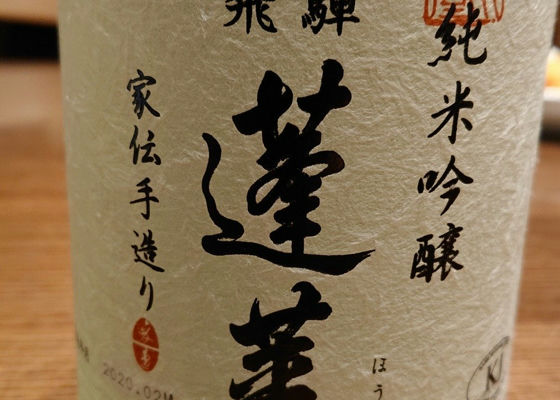 純米吟醸
飛騨
蓬莱
ほう
家伝手造り
2020.02
KJ